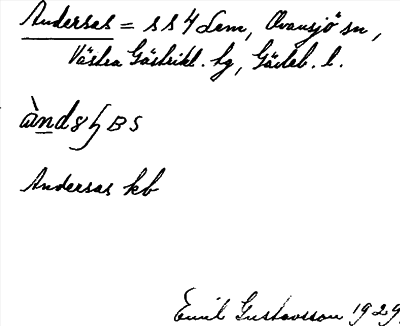 Andersas = s s 4 Lem, Ovansjö sn,
Västra Gästrikl. hg, Gävleb. l.
Andersas kb
Emil Gustavsson 1929